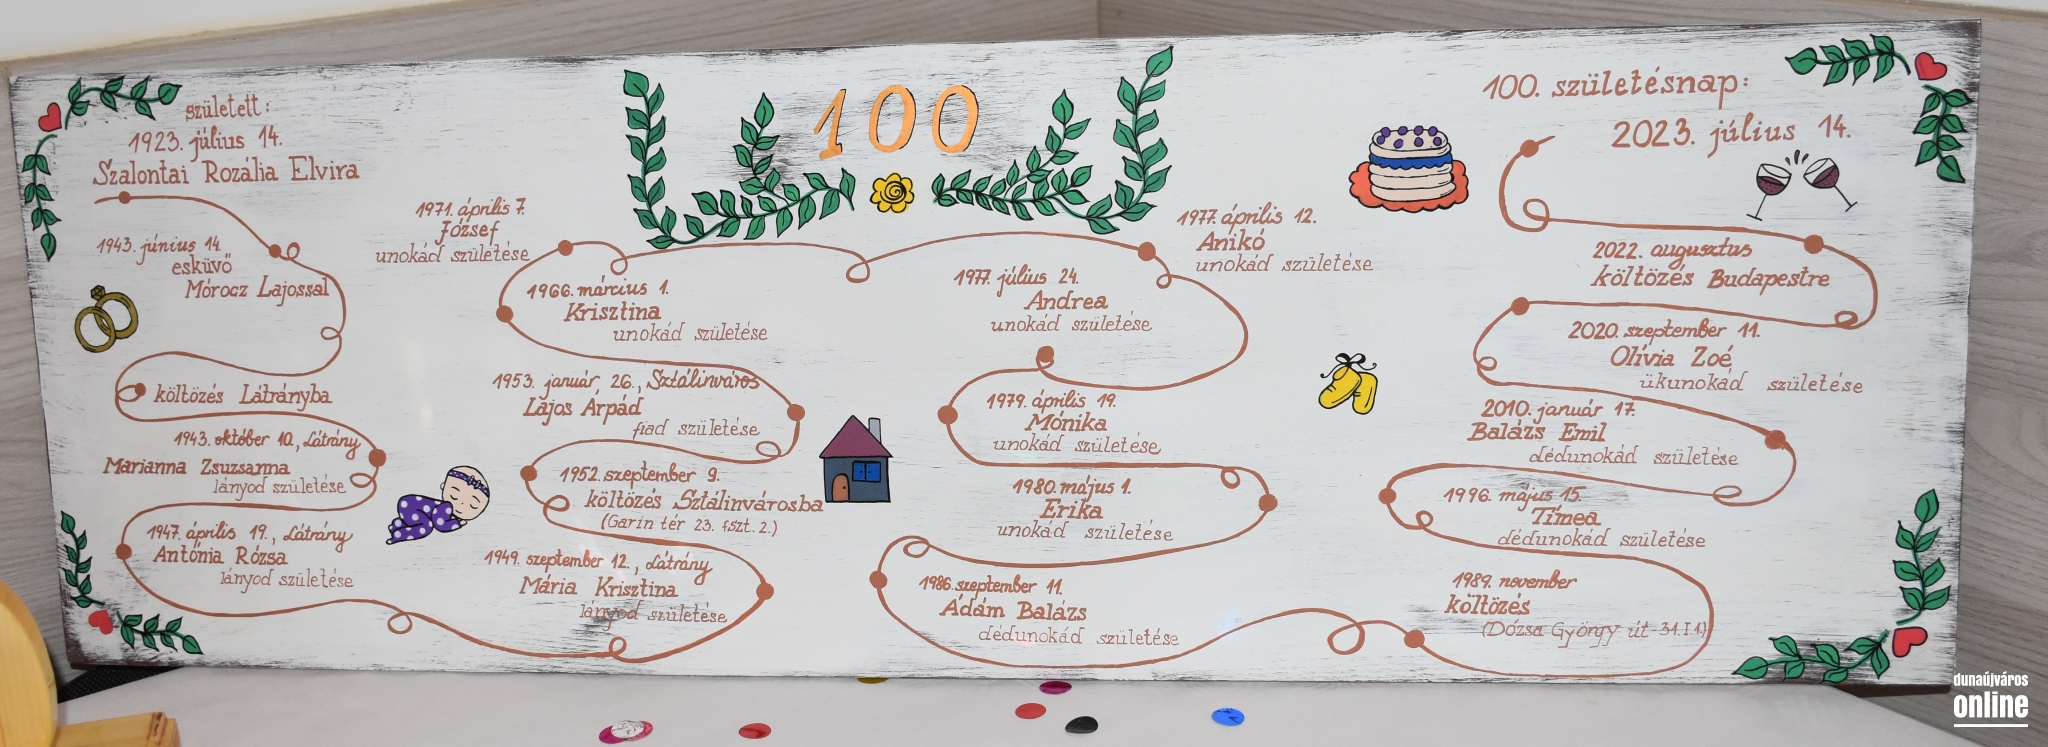 született:
1923. július 14.
Szalontai Rozália Elvira
1943. június 14.
esküvő
Mórocz Lajossal
költözés Látrányba
1943. október 10., Látrány
Marianna Zsuzsanna
lányod születése
1947. április 19., Látrány
Antónia Rózsa
lányod születése
1949. szeptember 12., Látrány
Mária Krisztina
lányod születése
1952. szeptember 9.
költözés Sztálinvárosba
(Garin tér 23. fszt. 2.)
1953. január, 26., Sztálinváros
Lajos Árpád
fiad születése
1966. március 1.
Krisztina
unokád születése
1971. április 7.
József
unokád születése
100
1977. április 12.
Anikó
unokád születése
1977. július 24.
Andrea
unokád születése
1979. április 19.
Mónika
unokád születése
1980. május 1.
Erika
unokád születése
1986. szeptember 11.
Ádám Balázs
dédunokád születése
1989. november
költözés
(Dózsa György út 31. I 1.)
1996. május 15.
Tímea
dédunokád születése
2010. január 17.
Balázs Emil
dédunokád születése
2020. szeptember 11.
Olívia Zoé
ükunokád születése
2022. augusztus
költözés Budapestre
100. születésnap:
2023. július 14.
dunaújváros
online